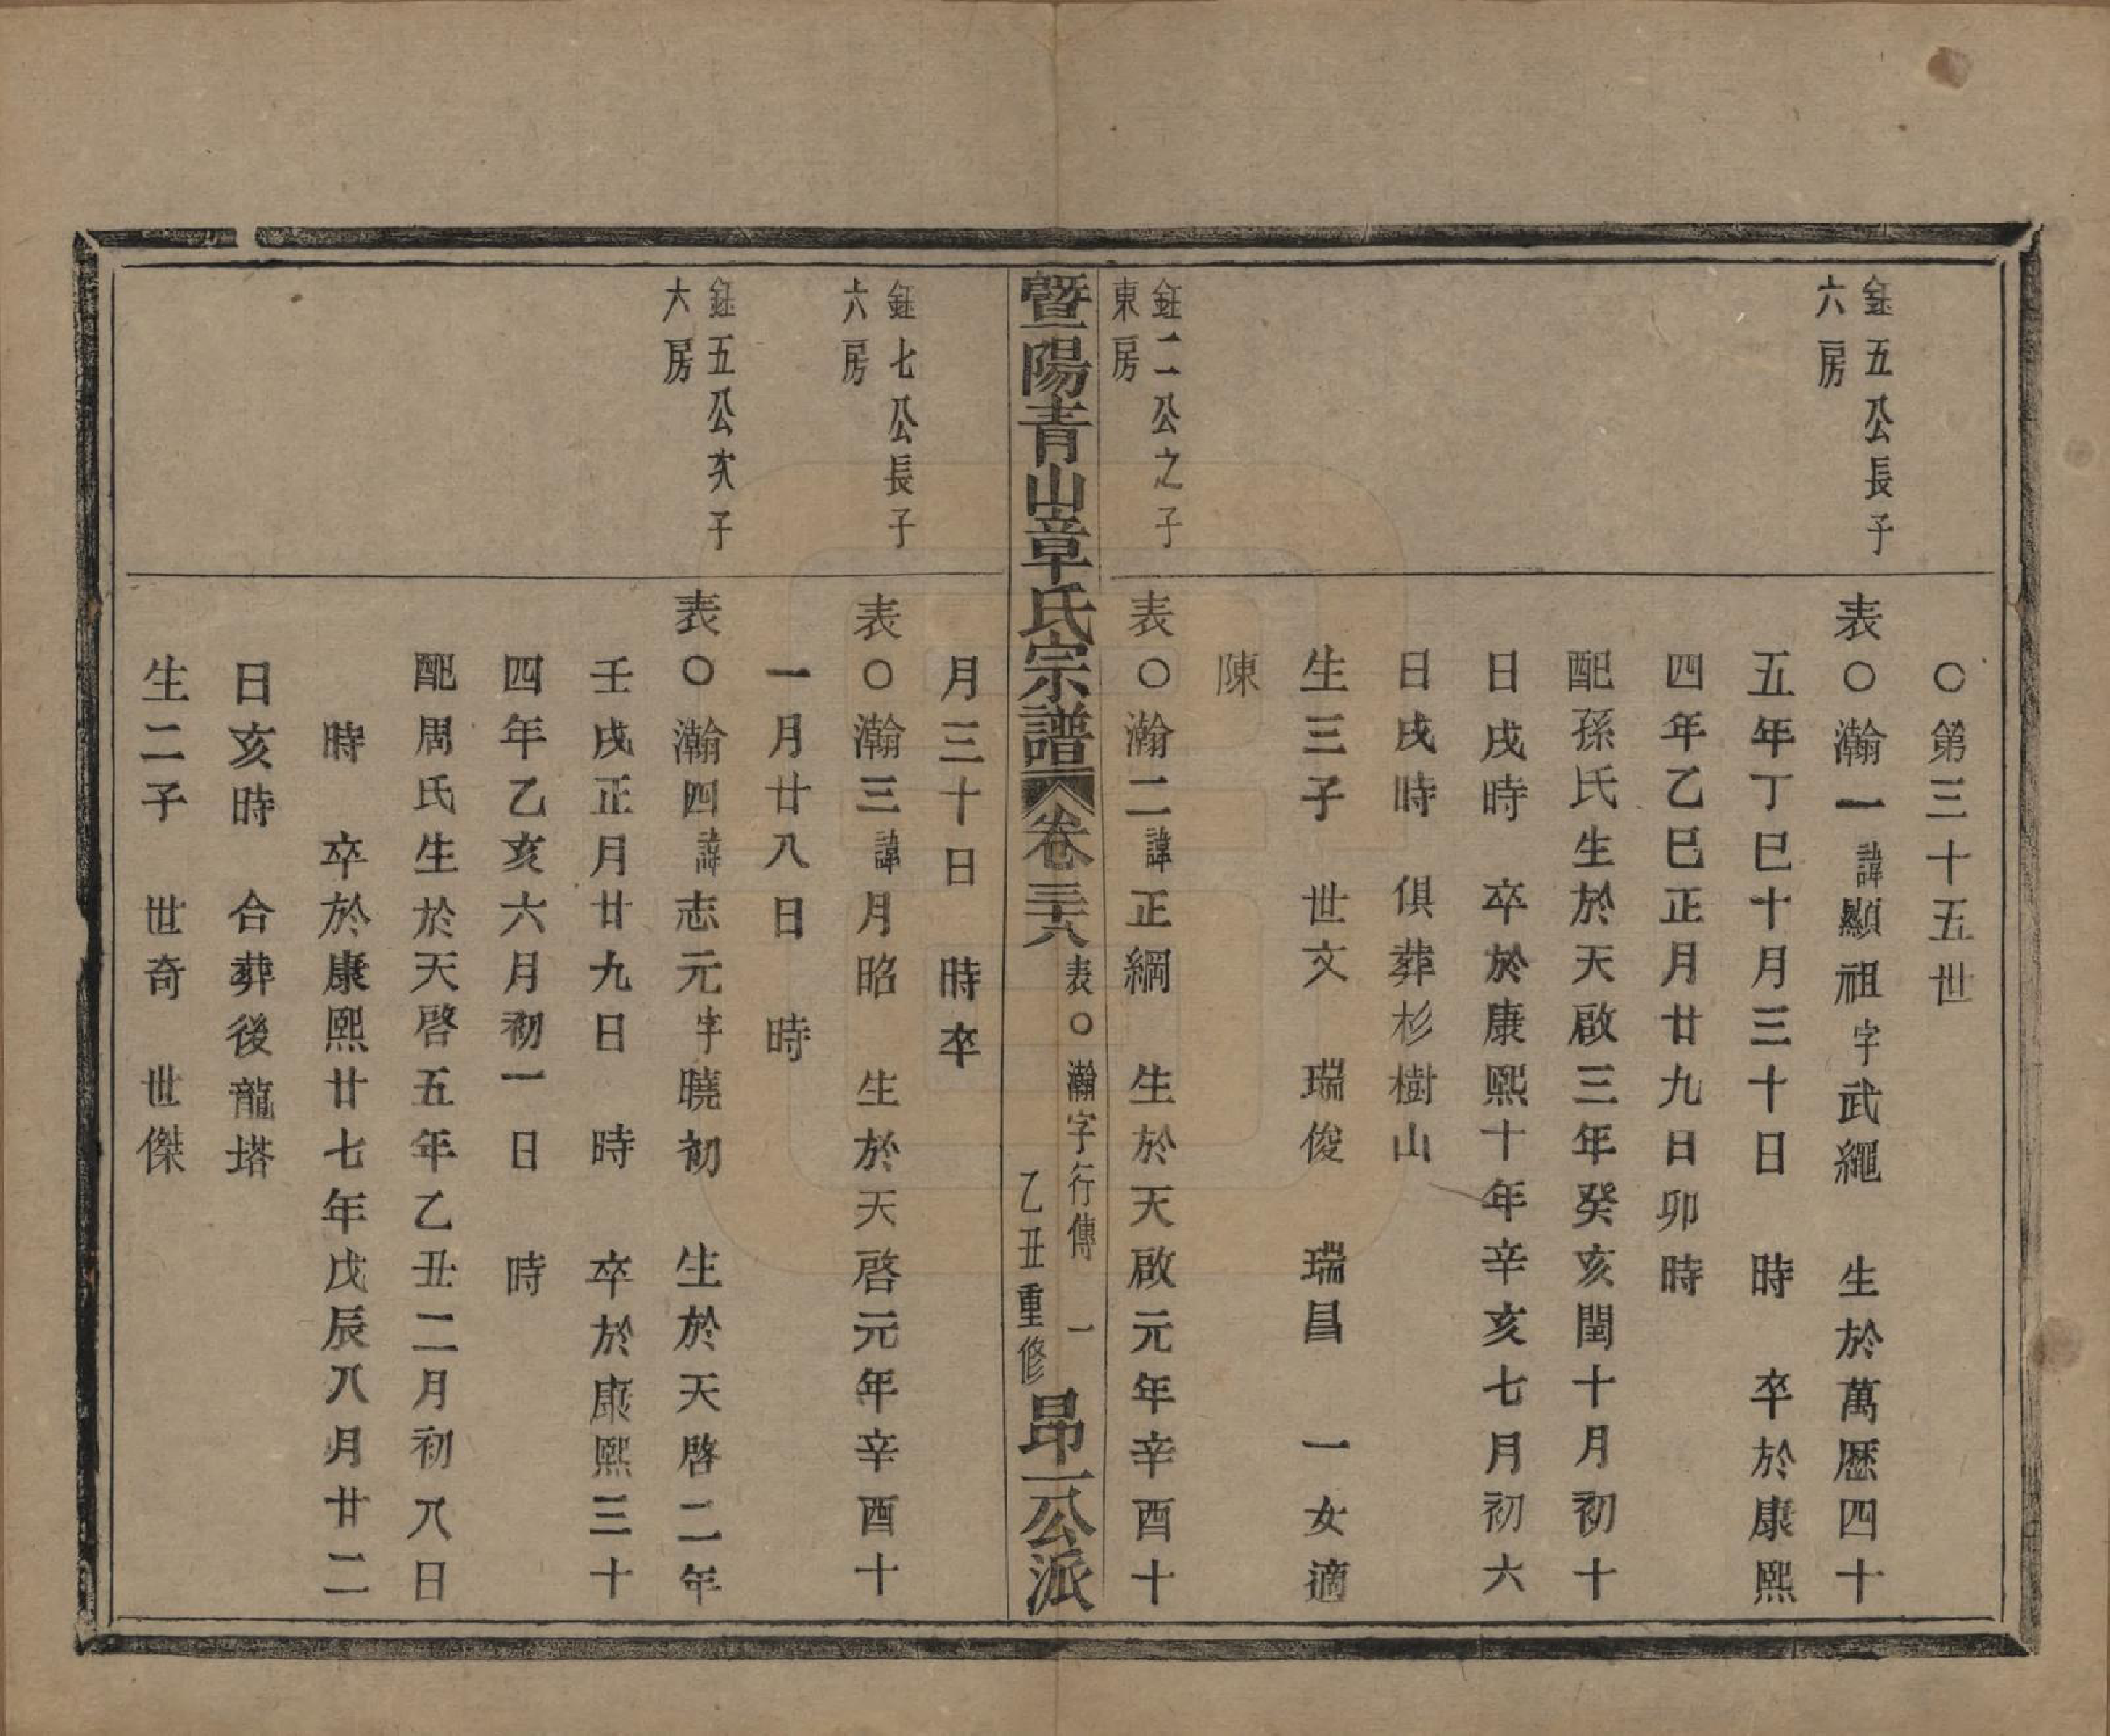 ○第三十五世
鈺五公長子
六房
表○瀚一諱顯祖字武繩　生於萬歷四十
五年丁巳十月三十日　時　卒於康熙
四年乙巳正月廿九日卯時
配孫氏生於天啟三年癸亥閏十月初十
日戌時　卒於康熙十年辛亥七月初六
日戌時　俱葬杉樹山
生三子　世文　瑞俊　瑞昌　一女適
陳
鈺二公之子
東房
表○瀚二諱正綱　生於天啟元年辛酉十
暨陽青山章氏宗譜　卷三十六　表○瀚字行傳　一　乙丑重修　昂一公派
月三十日　時卒
鈺七公長子
六房
表○瀚三諱月昭　生於天啓元年辛酉十
一月廿八日　時
鈺五公次子
六房
表○瀚四諱志元字曉初　生於天啓二年
壬戌正月廿九日　時　卒於康熙三十
四年乙亥六月初一日　時
配周氏生於天啓五年乙丑二月初八日
時　卒於康熙廿七年戊辰八月廿二
日亥時　合葬後龍塔
生二子　世奇　世傑